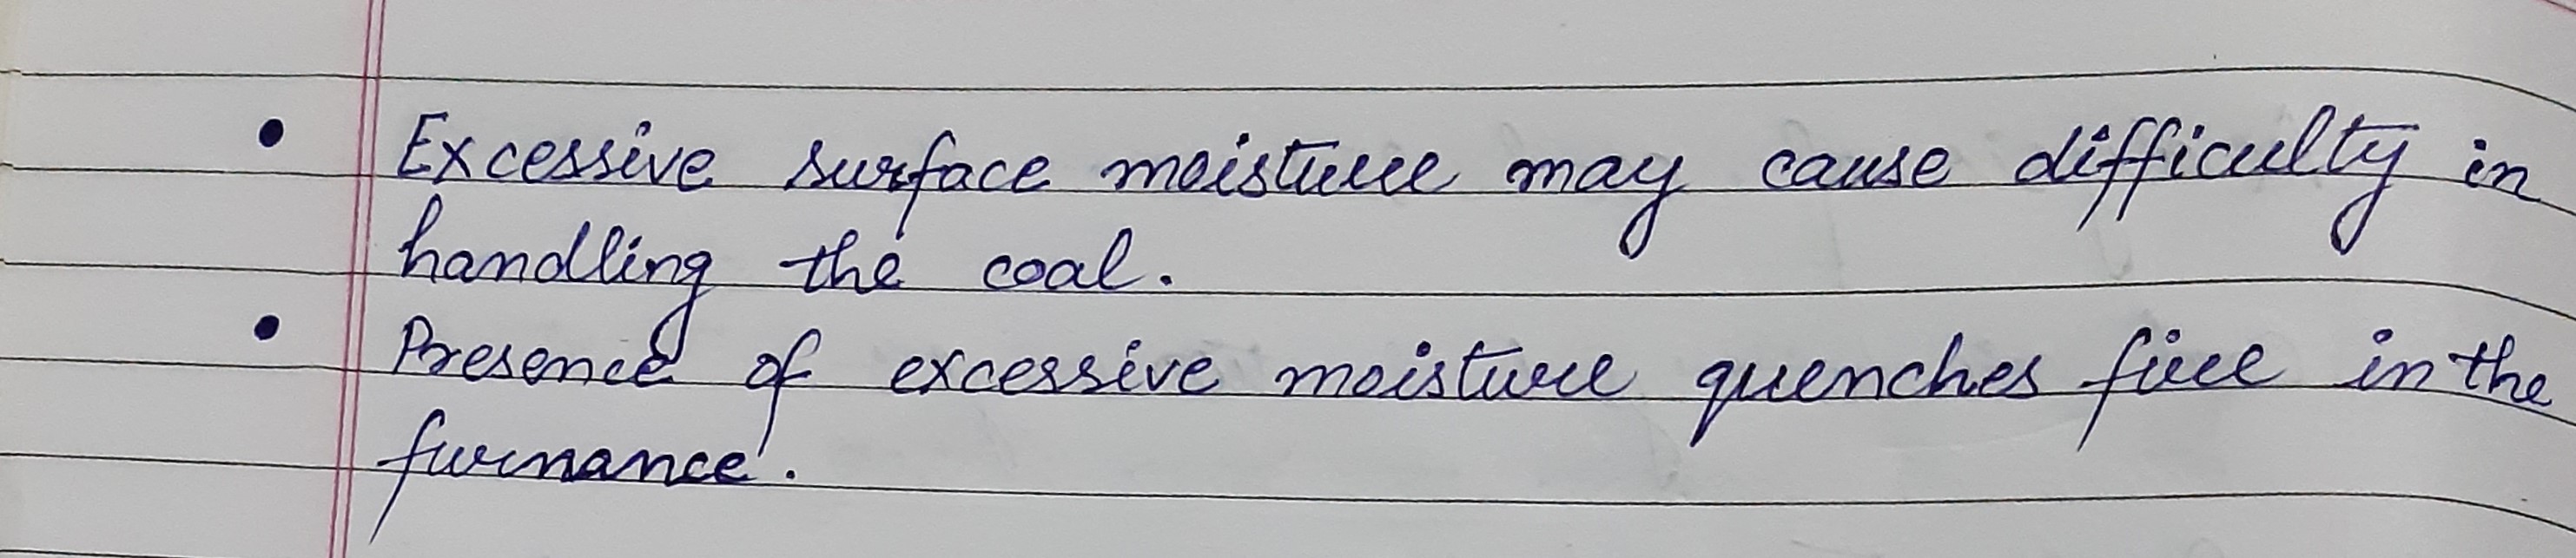 • Excessive surface moisture may cause difficulty in
handling the coal.
• Presence of excessive moisture quenches fire in the
furnance.